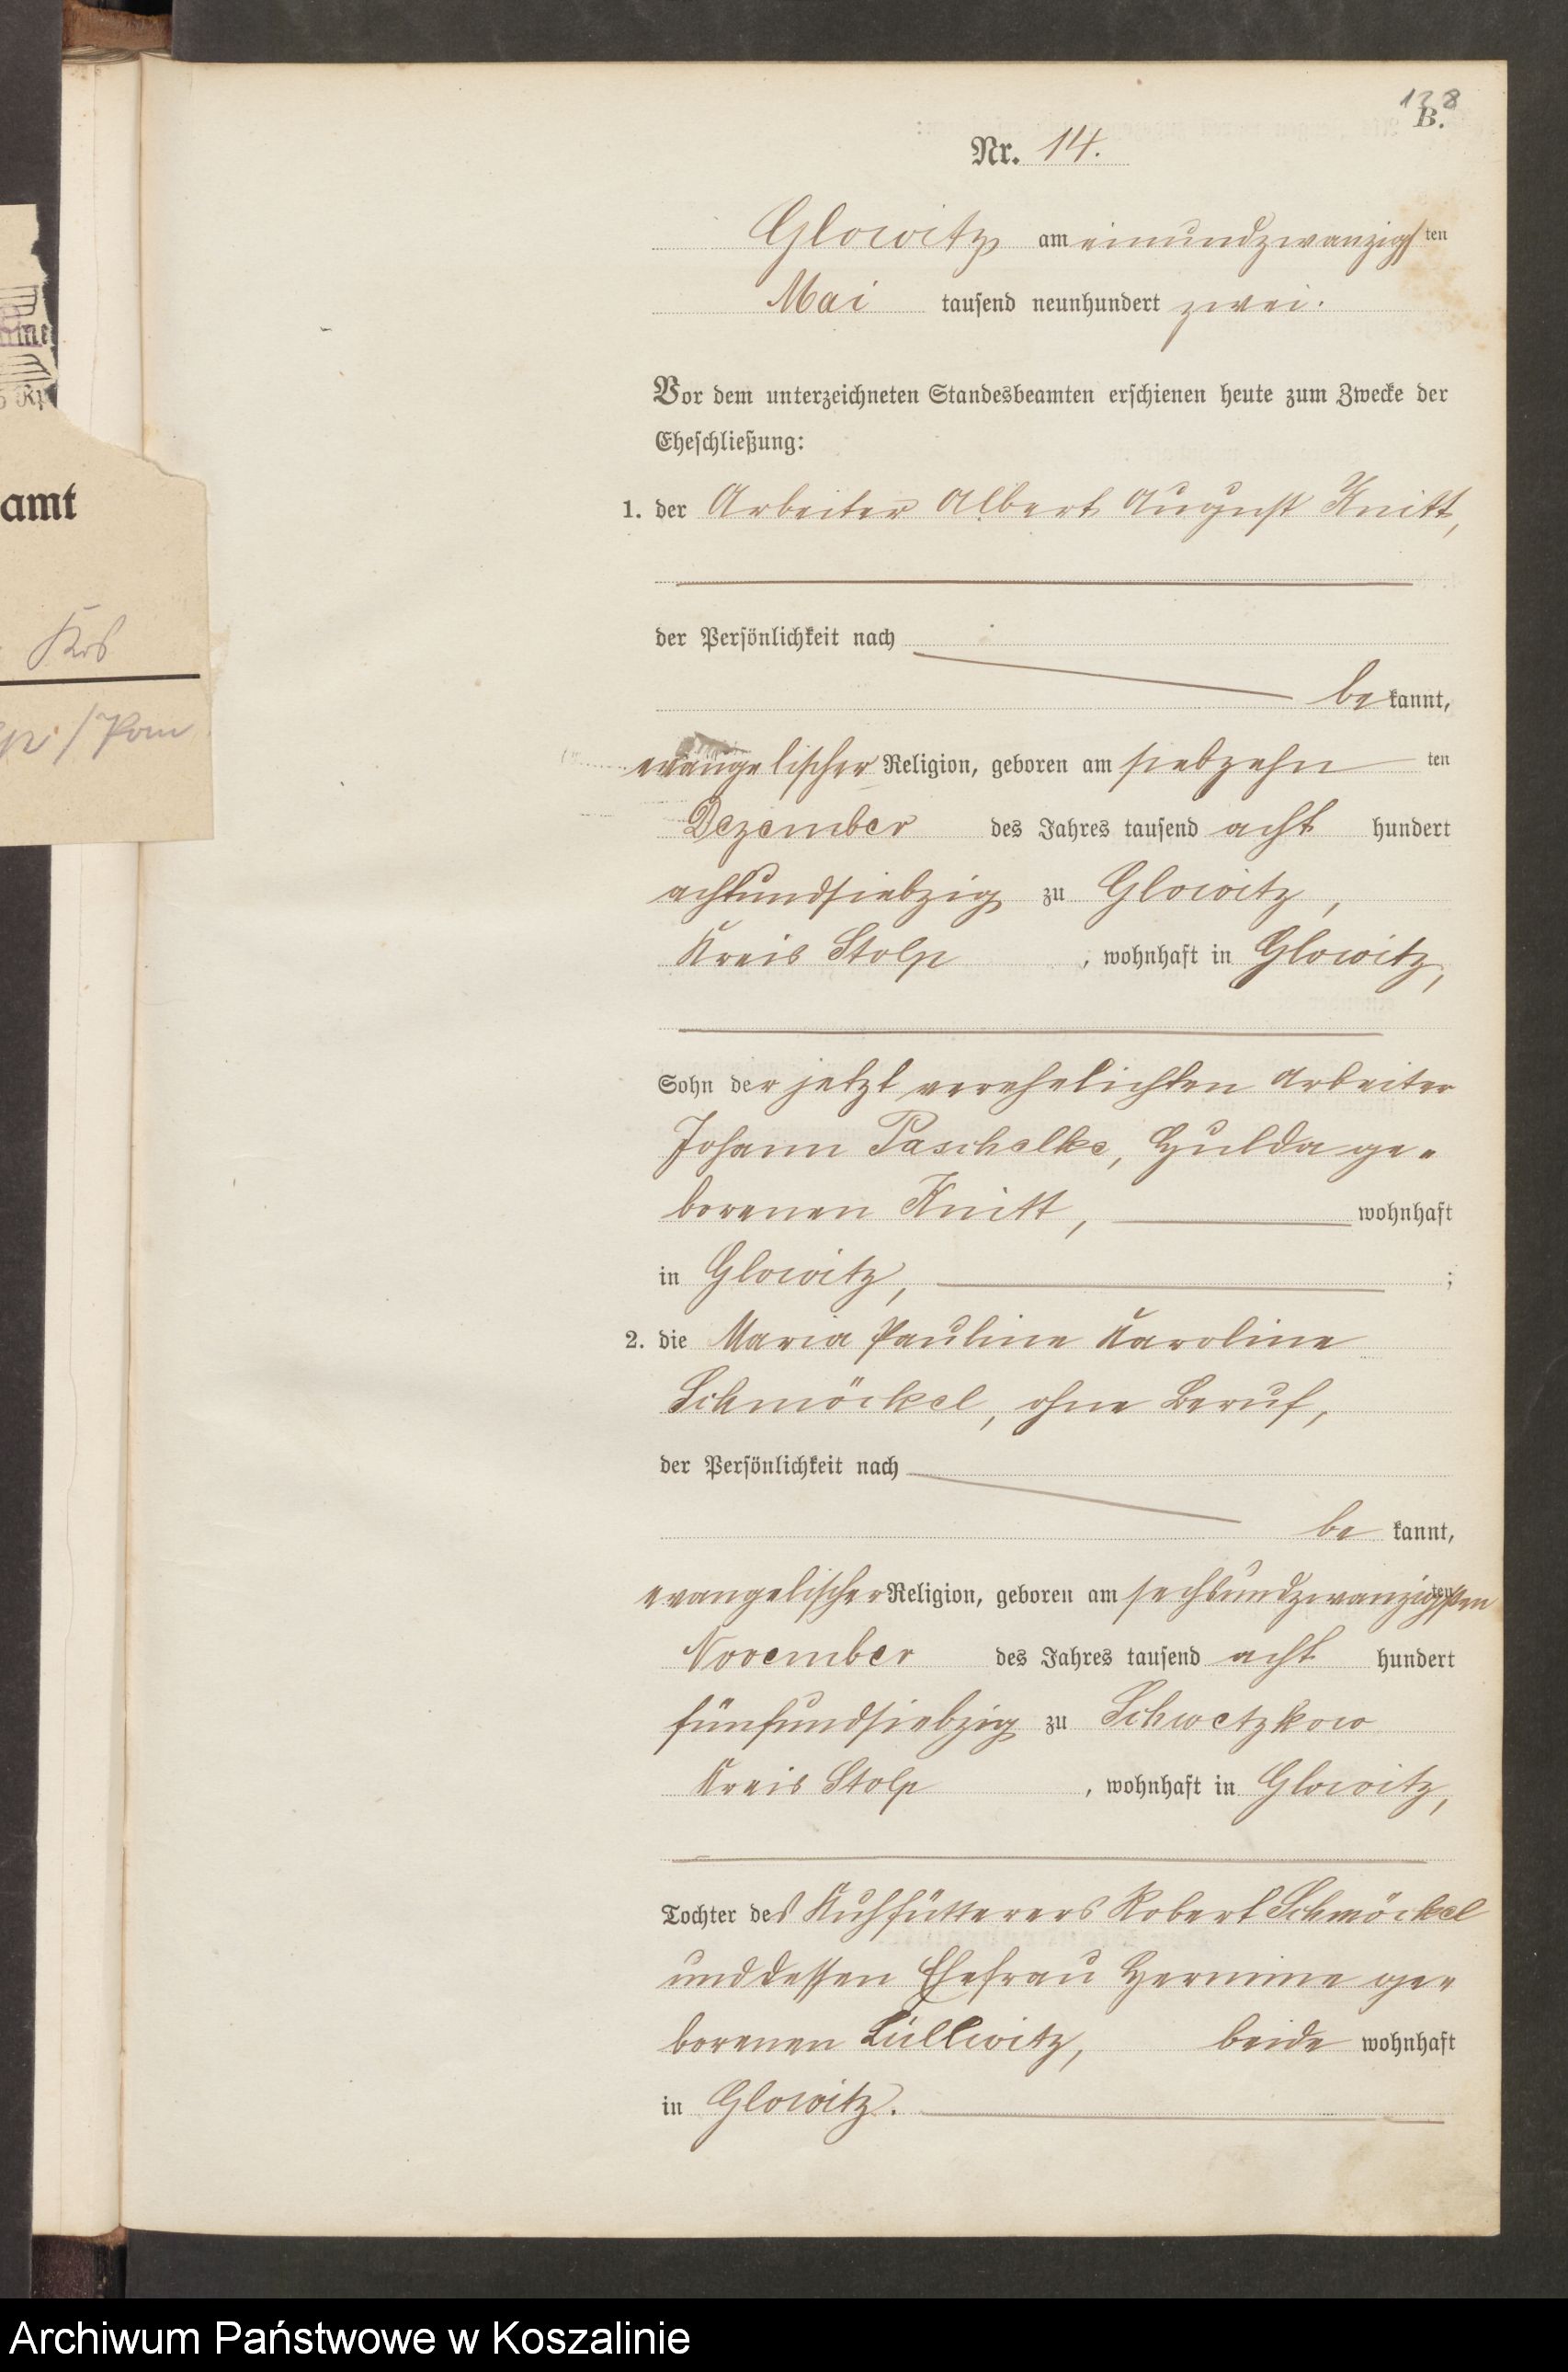 138
B.
Nr. 14.
Glowitz am einundzwanzigsten
Mai tausend neunhundert zwei.
Vor dem unterzeichneten Standesbeamten erschienen heute zum Zwecke der
Eheschließung:
1. der Arbeiter Albert August Knitt,
der Persönlichkeit nach
bekannt,
evangelischer Religion, geboren am siebzehn ten
Dezember des Jahres tausend acht hundert
achtundsiebzig zu Glowitz,
Kreis Stolp, wohnhaft in Glowitz,
Sohn der jetzt verehelichten Arbeiter
Johann Paschalke, Hulda ge-
borenen Knitt, wohnhaft
in Glowitz, ;
2. die Maria Pauline Karoline
Schmöckel, ohne Beruf,
der Persönlichkeit nach
be kannt,
evangelischer Religion, geboren am sechsundzwanzigsten
November des Jahres tausend acht hundert
fünfundsiebzig zu Schwetzkow
Kreis Stolp, wohnhaft in Glowitz,
Tochter des Kuhfütterers Robert Schmöckel
und dessen Ehefrau Hermine ge-
borenen Lüllwitz, beide wohnhaft
in Glowitz.
amt
Krs
/Pom
Archiwum Państwowe w Koszalinie